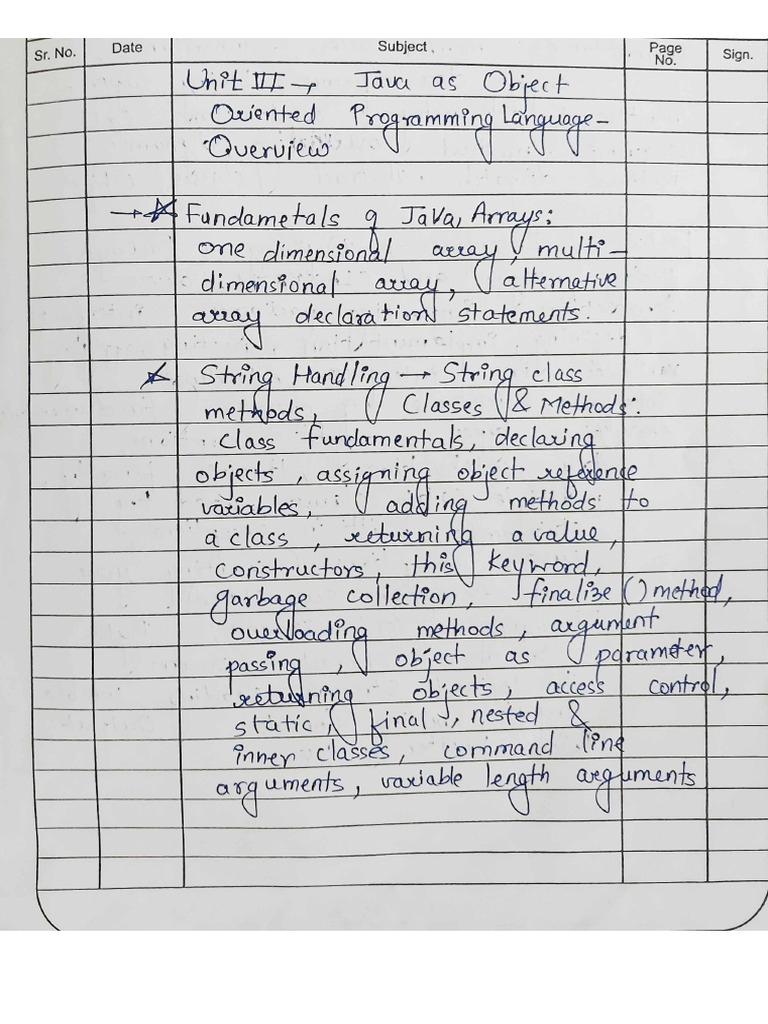 Sr. No. Date Subject Page No. Sign.
Unit III → Java as Object
Oriented Programming Language -
Overview
→ ☆ Fundametals of Java, Arrays:
one dimensional array, multi-
dimensional array, alternative
array declaration statements.
☆ String Handling → String class
methods, Classes & Methods:
class fundamentals, declaring
objects, assigning object reference
variables, adding methods to
a class, returning a value,
constructors, this keyword,
garbage collection, finalize () method,
overloading methods, argument
passing, object as parameter,
returning objects, access control,
static, final, nested &
inner classes, command line
arguments, variable length arguments